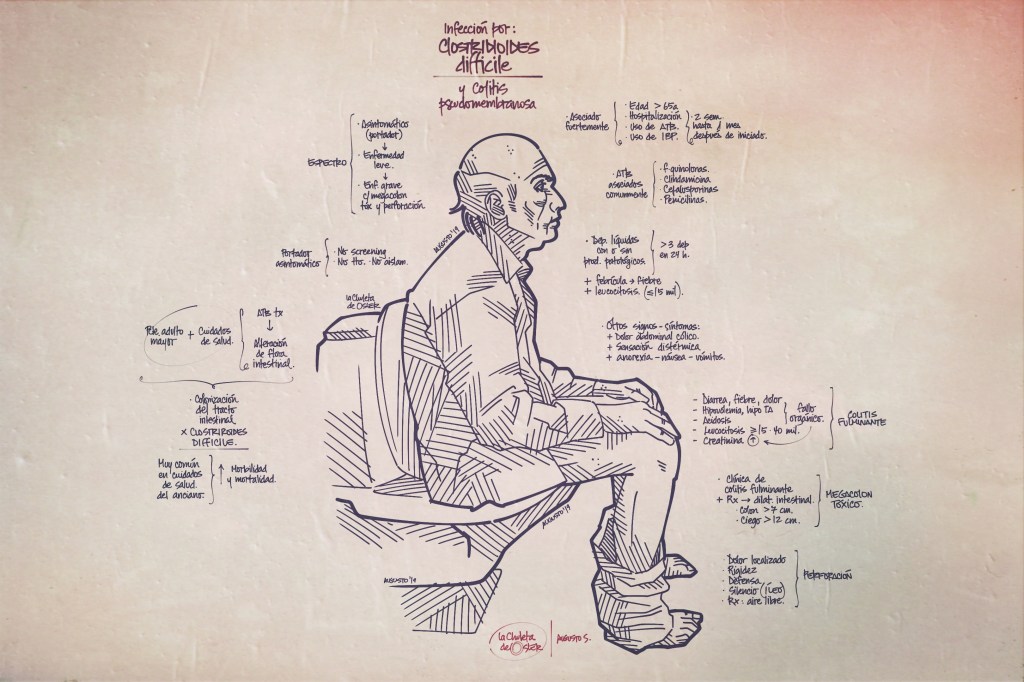 Infección por:
CLOSTRIDIOIDES
difficile
y Colitis
pseudomembranosa
ESPECTRO
· Asintomático
(portador)
↓
· Enfermedad
leve.
↓
· Enf. grave
c/ megacolon
tóx y perforación.
· Asociado
fuertemente
· Edad > 65a
· Hospitalización
· Uso de ATB.
· Uso de IBP.
· 2 sem
hasta 1 mes
después de iniciado.
· ATB
asociados
comunmente
· fquinolonas.
· Clindamicina
· Cefalosporinas
· Penicilinas.
Portador
asintomático
· No screening
· No tto. · No aislam.
· Dep. líquidas
con o sin
prod. patológicos.
> 3 dep
en 24 h.
+ febrícula → fiebre
+ leucocitosis. (≤15 mil).
AUGUSTO '19
la Chuleta
de OSLER
adulto
mayor
+ Cuidados
de salud.
ATB tx
↓
Alteración
de flora
intestinal.
· Colonización
del tracto
intestinal
x CLOSTRIROIDES
DIFFICILE.
Muy común
en cuidados
de salud
del anciano.
↑ Morbilidad
y mortalidad.
· Otros signos - síntomas:
+ Dolor abdominal cólico.
+ Sensación distérmica.
+ anorexia - náusea - vómitos.
- Diarrea, fiebre, dolor
- Hipovolemia, hipo TA
- Acidosis
- Leucocitosis ≥ 15 · 40 mil.
- Creatinina ↑
fallo
orgánico.
COLITIS
FULMINANTE
· Clínica de
colitis fulminante
+ Rx → dilat. intestinal.
· Colon > 7 cm.
· Ciego > 12 cm.
MEGACOLON
TÓXICO.
· Dolor localizado
· Rigidez
· Defensa
· Silencio (íleo)
· Rx: aire libre.
PERFORACIÓN
AUGUSTO '19
AUGUSTO '19
la Chuleta
de OSLER
AUGUSTO S.